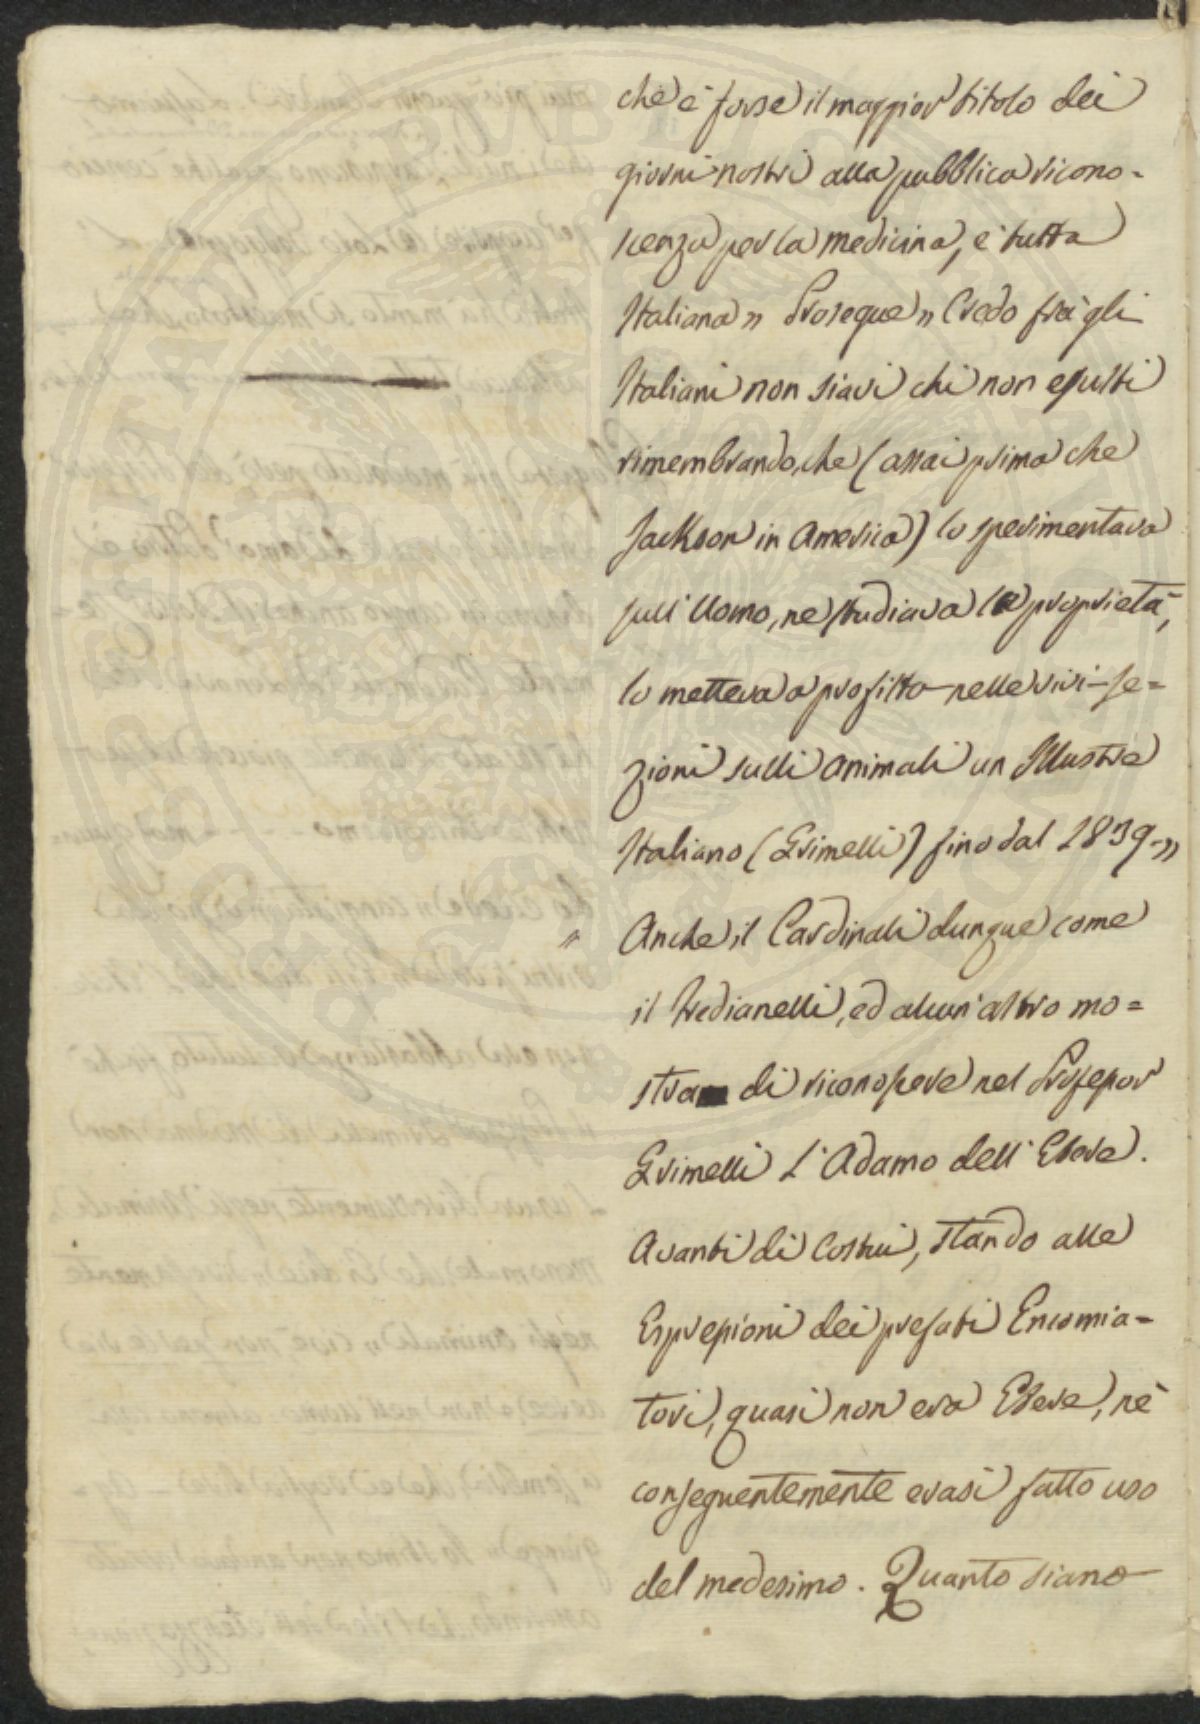 che è forse il maggior titolo dei
giorni nostri alla pubblica ricono-
scenza per la medicina, è tutta
Italiana" Prosegue" Credo frà gli
Italiani non siavi chi non esulti
rimembrando, che (assai prima che
Jackson in America) lo sperimentava
sull'Uomo, ne studiava le proprietà,
lo metteva a profitto nelle vivi-se=
zioni sulli animali un Illustre
Italiano (Grimelli) fino dal 1839-"
" Anche il Cardinali dunque come
il Fredianelli, ed alcun'altro mo=
stra di riconoscere nel Professor
Grimelli L'Adamo dell'Etere.
Avanti di Costui, stando alle
Espressioni dei prefati Encomia-
tori, quasi non era Etere, nè
conseguentemente erasi fatto uso
del medesimo. Quanto siano